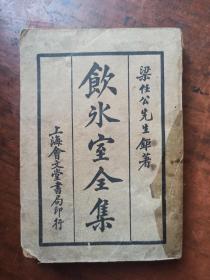 梁任公先生鉅著
飲冰室全集
上海會文堂書局印行